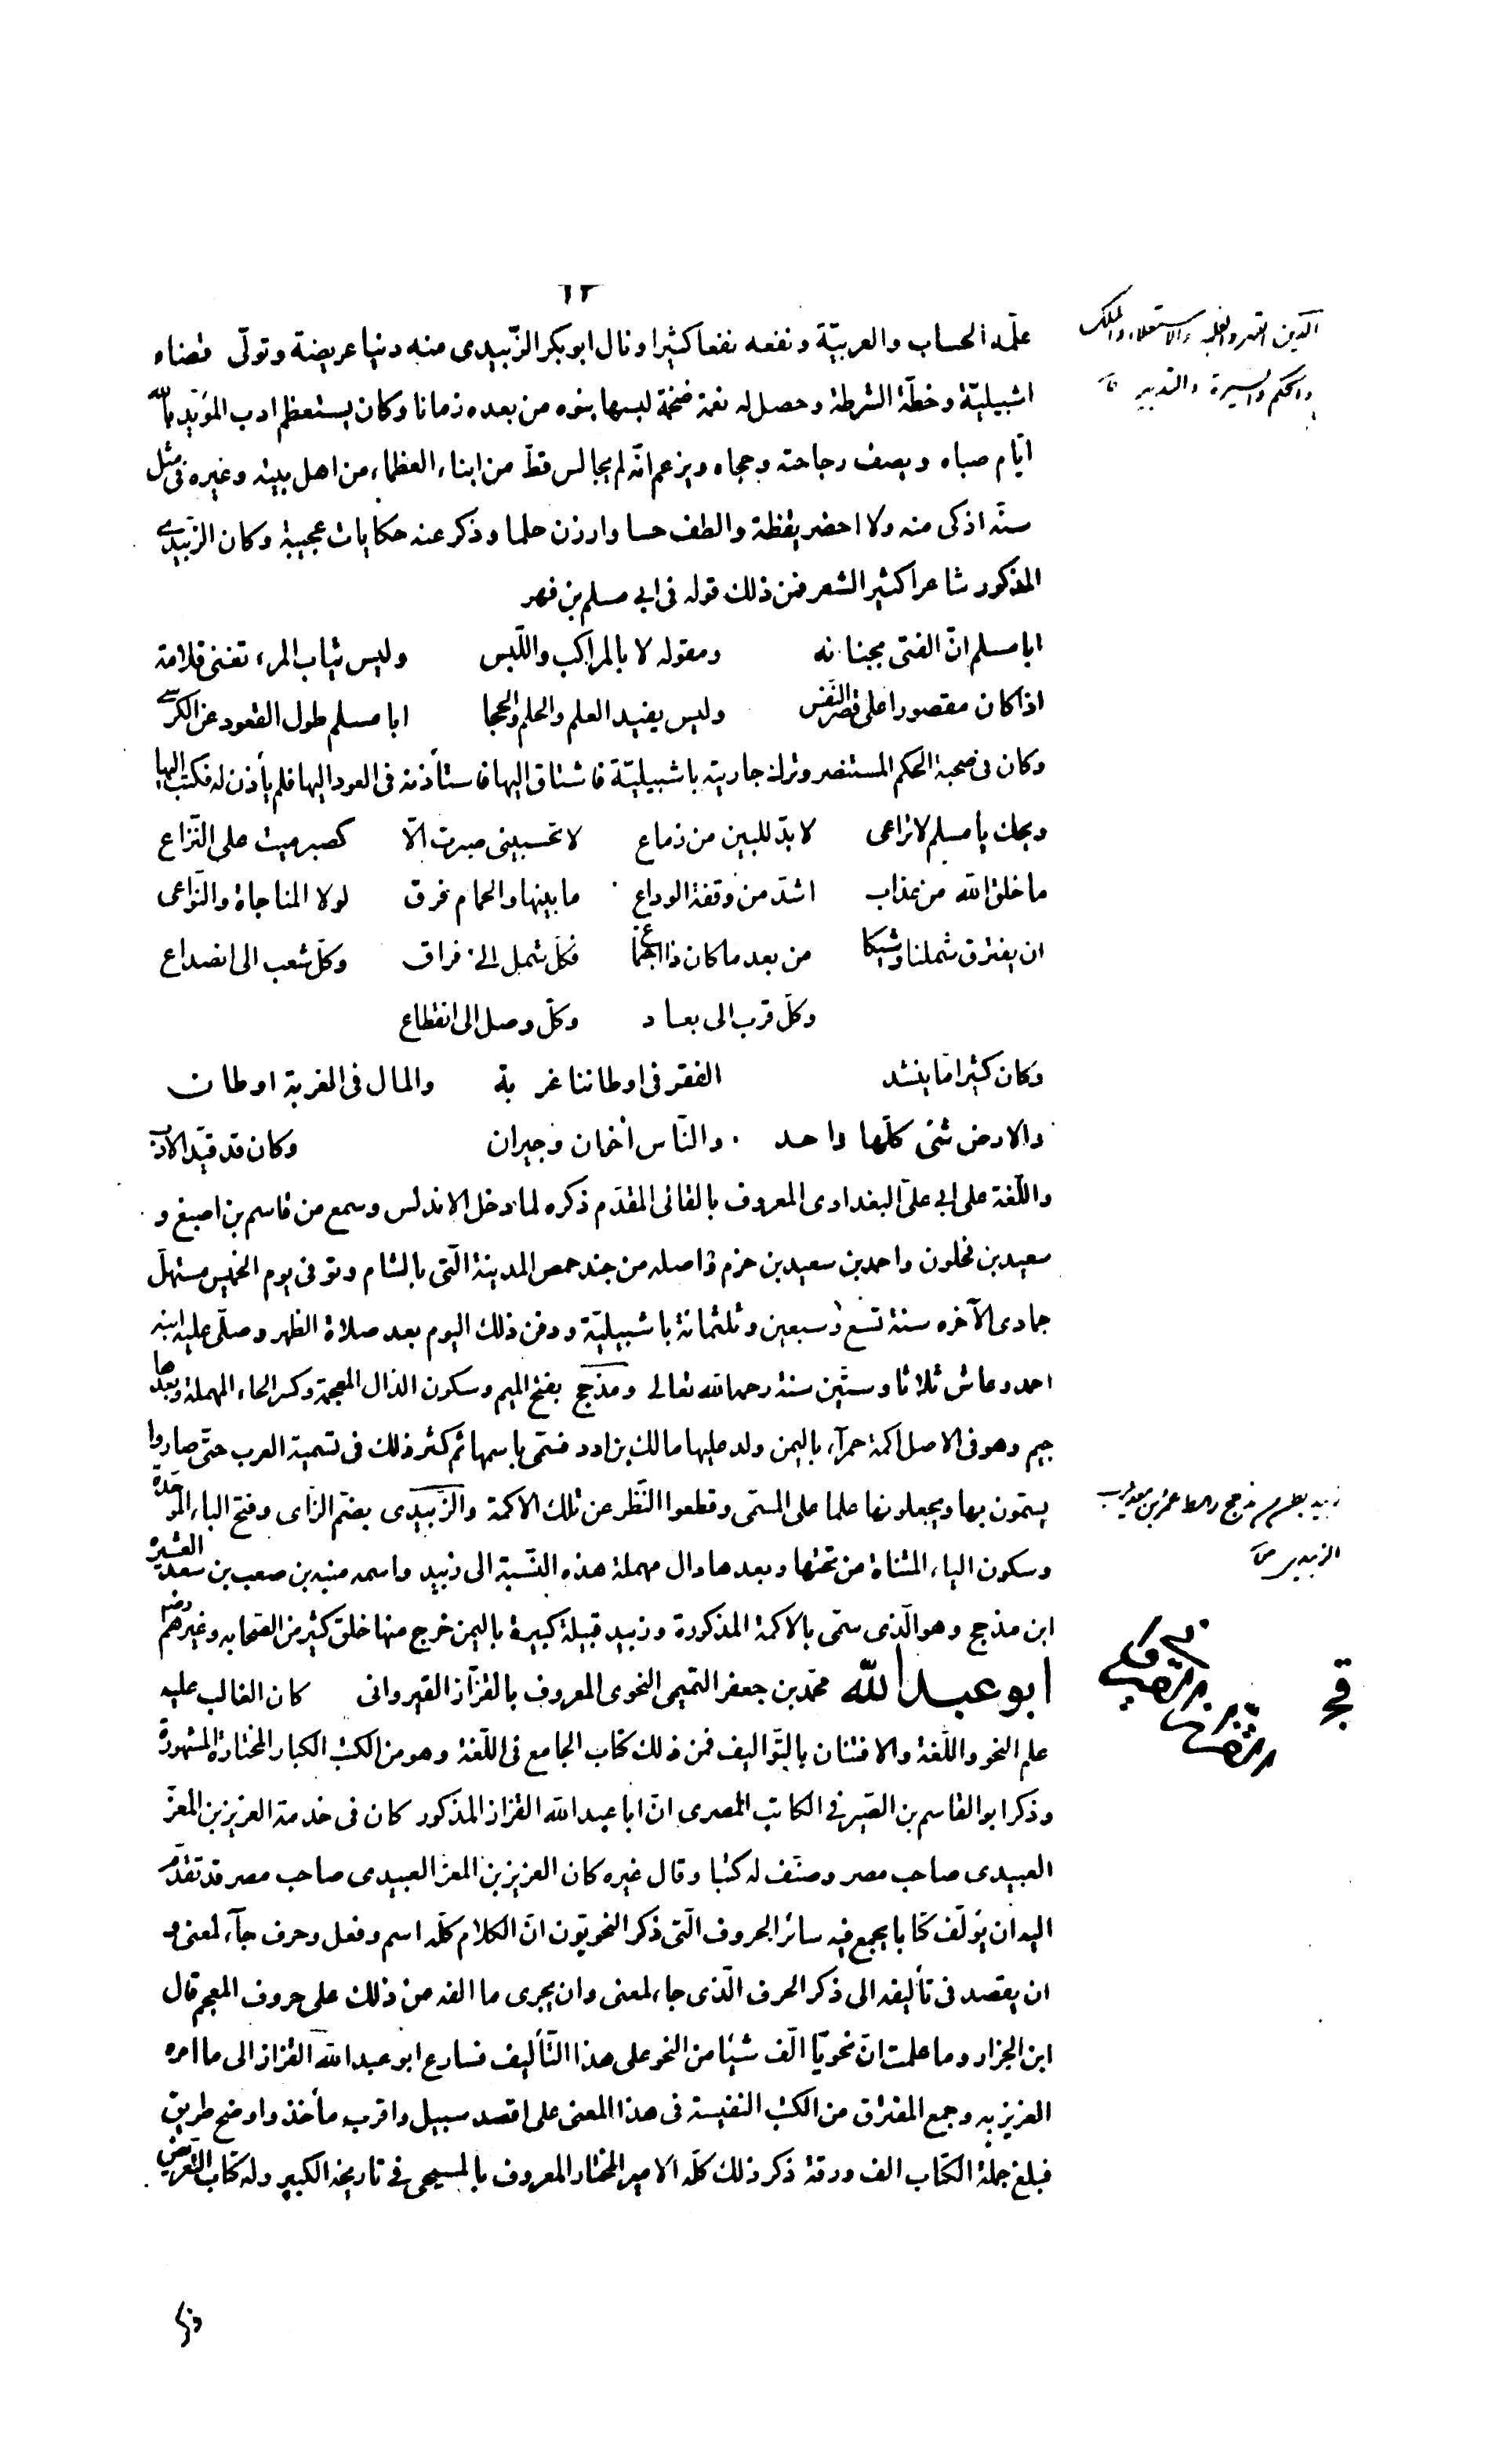 ١٢
علّمه الحساب والعربيّة ونفعه نفعا كثيرا ونال ابو بكر الزّبيدى منه دنيا عريضة وتولّى قضاء
اشبيليّة وخطّة الشرطة وحصل له نعمة ضخمة لبسها بنوه من بعده زمانا وكان يستعظم ادب المؤيّد بالله
ايّام صباه ويصف رجاحته وحجاه ويزعم انّه لم يجالس قطّ من ابناء العظماء من اهل بيته وغيره فى مثل
سنّه اذكى منه ولا احضر يقظة والطف حسا وارزن حلما وذكر عنه حكايات عجيبة وكان الزّبيدى
المذكور شاعرا كثير الشعر فمن ذلك قوله فى ابى مسلم بن فهر
ابا مسلم انّ الفتى بجنانه ومقوله لا بالمراكب واللّبس وليس ثياب المرء تغنى قلامة
اذا كان مقصورا على قصر النّفس وليس يفيد العلم والحلم والحجا ابا مسلم طول القعود عن الكرسى
وكان فى صحبة الحكم المستنصر وترك جاريته باشبيليّة فاشتاق اليها فاستأذنه فى العود اليها فلم يأذن له فكتب اليها
ويحك يا مسلم لا تراعى لا بدّ للبين من زماع لا تحسبينى صبرت الّا كصبر ميت على النّزاع
ما خلق الله من عذاب اشدّ من وقفة الوداع ما بينها والحمام فرق لولا المناجاة والنّواعى
ان يفترق شملنا وشيكا من بعد ما كان ذا اجتماع فكلّ شمل الى فراق وكلّ شعب الى انصداع
وكلّ قرب الى بعاد وكلّ وصل الى انقطاع
وكان كثيرا ما ينشد الفقر فى اوطاننا غربة والمال فى الغربة اوطان
والارض شئ كلّها واحد والنّاس اخوان وجيران وكان قد قيّد الادب
واللّغة على ابى علىّ البغدادى المعروف بالقالى المقدّم ذكره لما دخل الاندلس وسمع من قاسم بن اصبغ و
سعيد بن فحلون واحمد بن سعيد بن حزم واصله من جند حمص المدينة الّتى بالشام وتوفى يوم الخميس مستهلّ
جمادى الآخره سنة تسع وسبعين وثلثمائة باشبيليّة ودفن ذلك اليوم بعد صلاة الظهر وصلّى عليه ابنه
احمد وعاش ثلاثا وستّين سنة رحمه الله تعالى ومذحج بفتح الميم وسكون الذال المعجمة وكسر الحاء المهملة وبعدها
جيم وهو فى الاصل اكمة حمرآء باليمن ولد عليها مالك بن ادد فسمّى باسمها ثم كثر ذلك فى تسمية العرب حتّى صاروا
يسمّون بها ويجعلونها علما على المسمّى وقطعوا النّظر عن تلك الاكمة والزّبيدى بضمّ الزّاى وفتح الباء الموحّدة
وسكون الياء المثناة من تحتها وبعدها دال مهملة هذه النّسبة الى زبيد واسمه منبه بن صعب بن سعد العشيرة
ابن مذحج وهو الّذى سمّى بالاكمة المذكورة وزبيد قبيلة كبيرة باليمن خرج منها خلق كثير من الصّحابه وغيرهم رضهم
ابو عبد الله محمّد بن جعفر التّميمى النحوى المعروف بالقزّاز القيروانى كان الغالب عليه
علم النحو واللّغة والافتنان بالتّواليف فمن ذلك كتاب الجامع فى اللّغة وهو من الكتب الكبار المختارة المشهورة
وذكر ابو القاسم بن الصّيرفى الكاتب المصرى انّ ابا عبد الله القزاز المذكور كان فى خدمة العزيز بن المعزّ
العبيدى صاحب مصر وصنّف له كتبا وقال غيره كان العزيز بن المعز العبيدى صاحب مصر قد تقدّم
اليه ان يؤلّف كتابا يجمع فيه سائر الحروف الّتى ذكر النحويّون انّ الكلام كلّه اسم وفعل وحرف جآء لمعنى و
ان يقصد فى تأليفه الى ذكر الحرف الّذى جاء لمعنى وان يجرى ما الفه من ذلك على حروف المعجم قال
ابن الجزار وما علمت انّ نحويّا الّف شيئا من النحو على هذا التّأليف فسارع ابو عبد الله القزاز الى ما امره
العزيز به وجمع المفترق من الكتب النفيسة فى هذا المعنى على اقصد سبيل واقرب مأخذ واوضح طريق
فبلغ جملة الكتاب الف ورقة ذكر ذلك كلّه الامير المختار المعروف بالمسبحى فى تاريخه الكبير وله كتاب التّعريض
الدين القهر والغلبة والاستعلاء والملك
والحكم والسيرة والتدبير
زبيد بطن من مذحج رهط عمرو بن معديكرب
الزبيدى